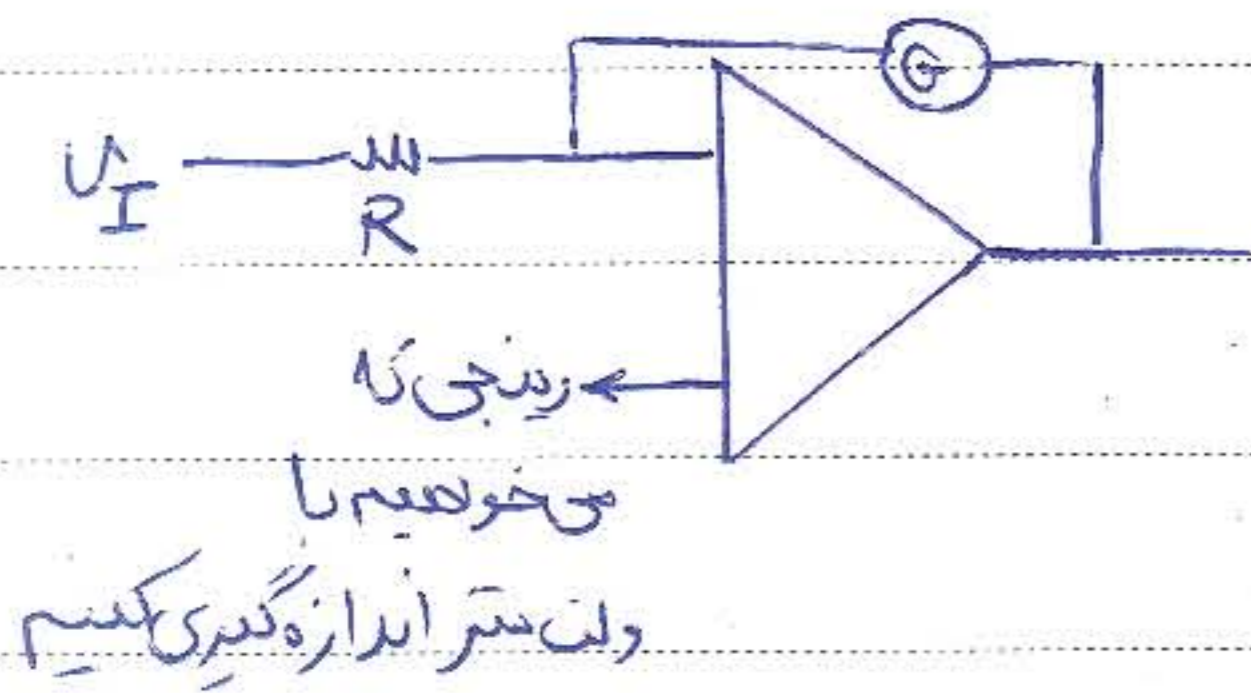 G
V_I
R
رینجی که
می خواهیم با
ولت متر اندازه گیری کنیم